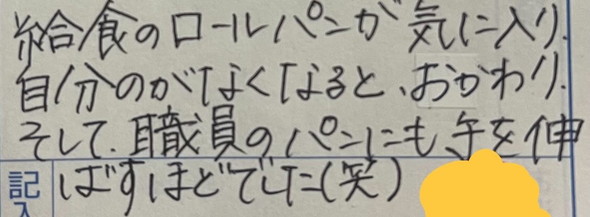 給食のロールパンが気に入り、
自分のがなくなると、おかわり。
そして、職員のパンにも手を伸
ばすほどでした(笑)
記
入